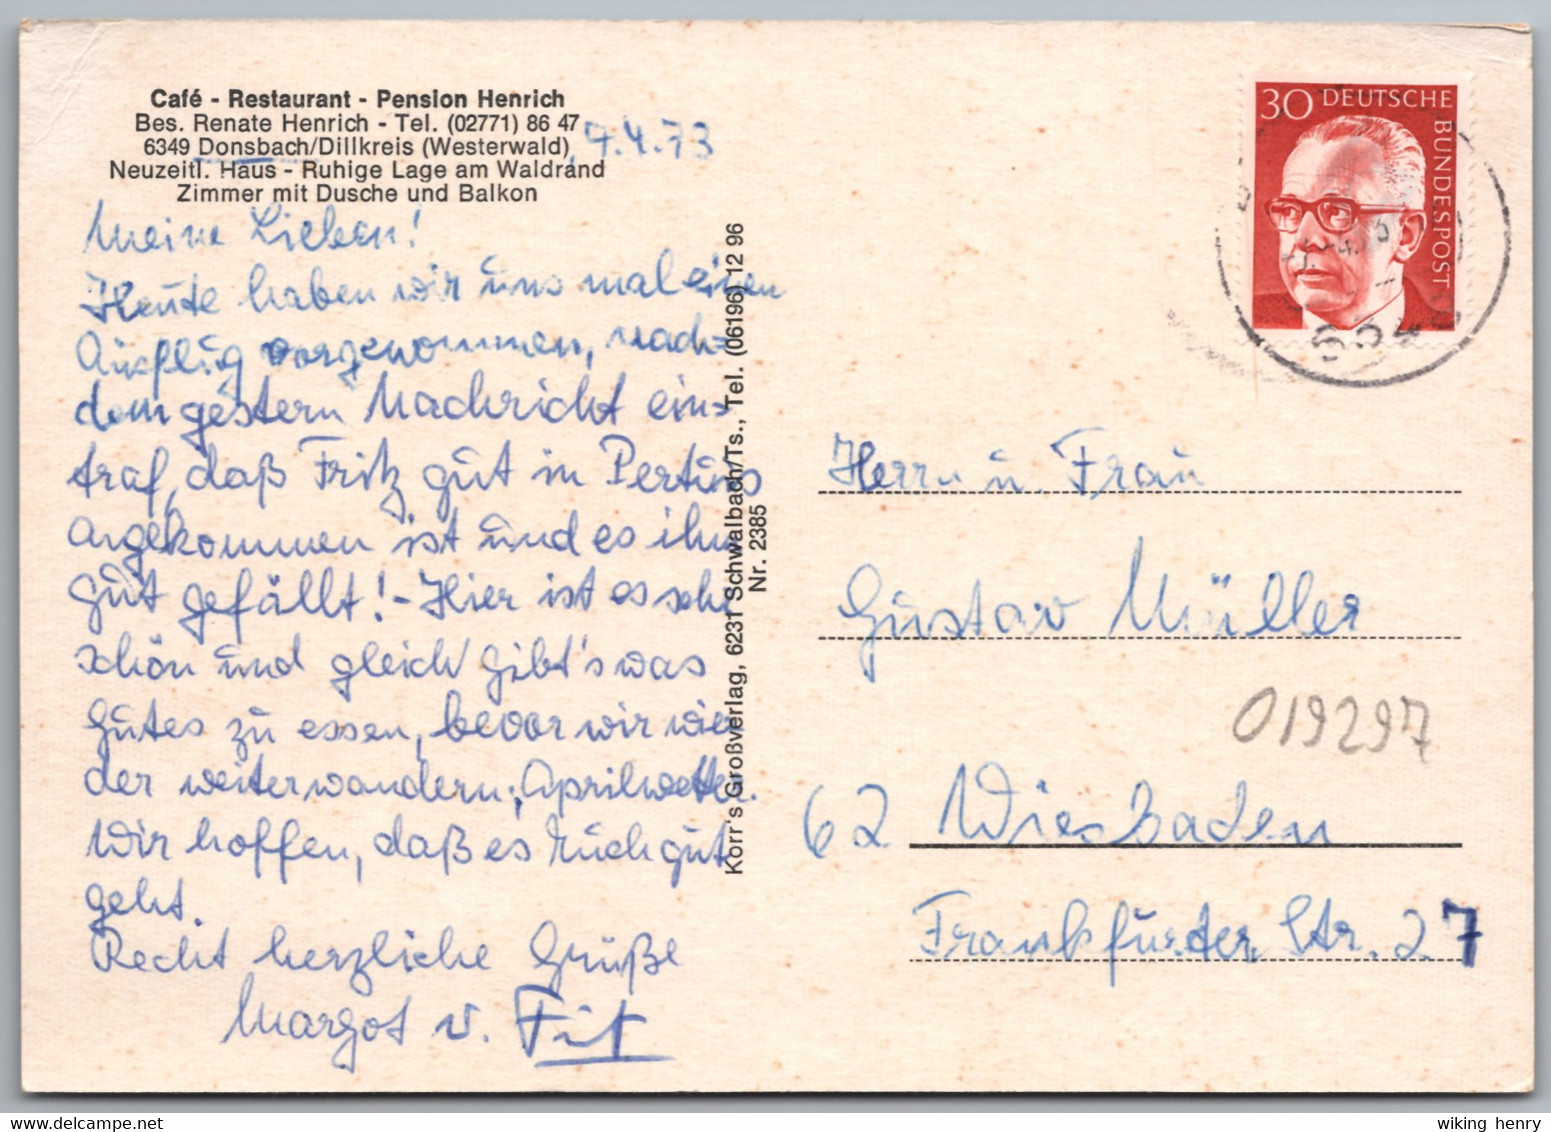 Café - Restaurant - Pension Henrich
Bes. Renate Henrich - Tel. (02771) 86 47
6349 Donsbach/Dillkreis (Westerwald), 7.4.73
Neuzeitl. Haus - Ruhige Lage am Waldrand
Zimmer mit Dusche und Balkon
Meine Lieben!
Heute haben wir uns mal einen
Ausflug vorgenommen, nach=
dem gestern Nachricht ein=
traf, daß Fritz gut in
angekommen ist und es ihm
gut gefällt! - Hier ist es sehr
schön und gleich gibt's was
Gutes zu essen, bevor wir wie
der weiterwandern; Aprilwetter.
Wir hoffen, daß es Euch gut
geht.
Recht herzliche Grüße
Margot u.
Korr's Großverlag, 6231 Schwalbach/Ts., Tel. (06196) 12 96
Nr. 2385
30 DEUTSCHE
BUNDESPOST
Herrn u. Frau
Gustav Müller
019297
62 Wiesbaden
Frankfurter Str. 27
wiking henry